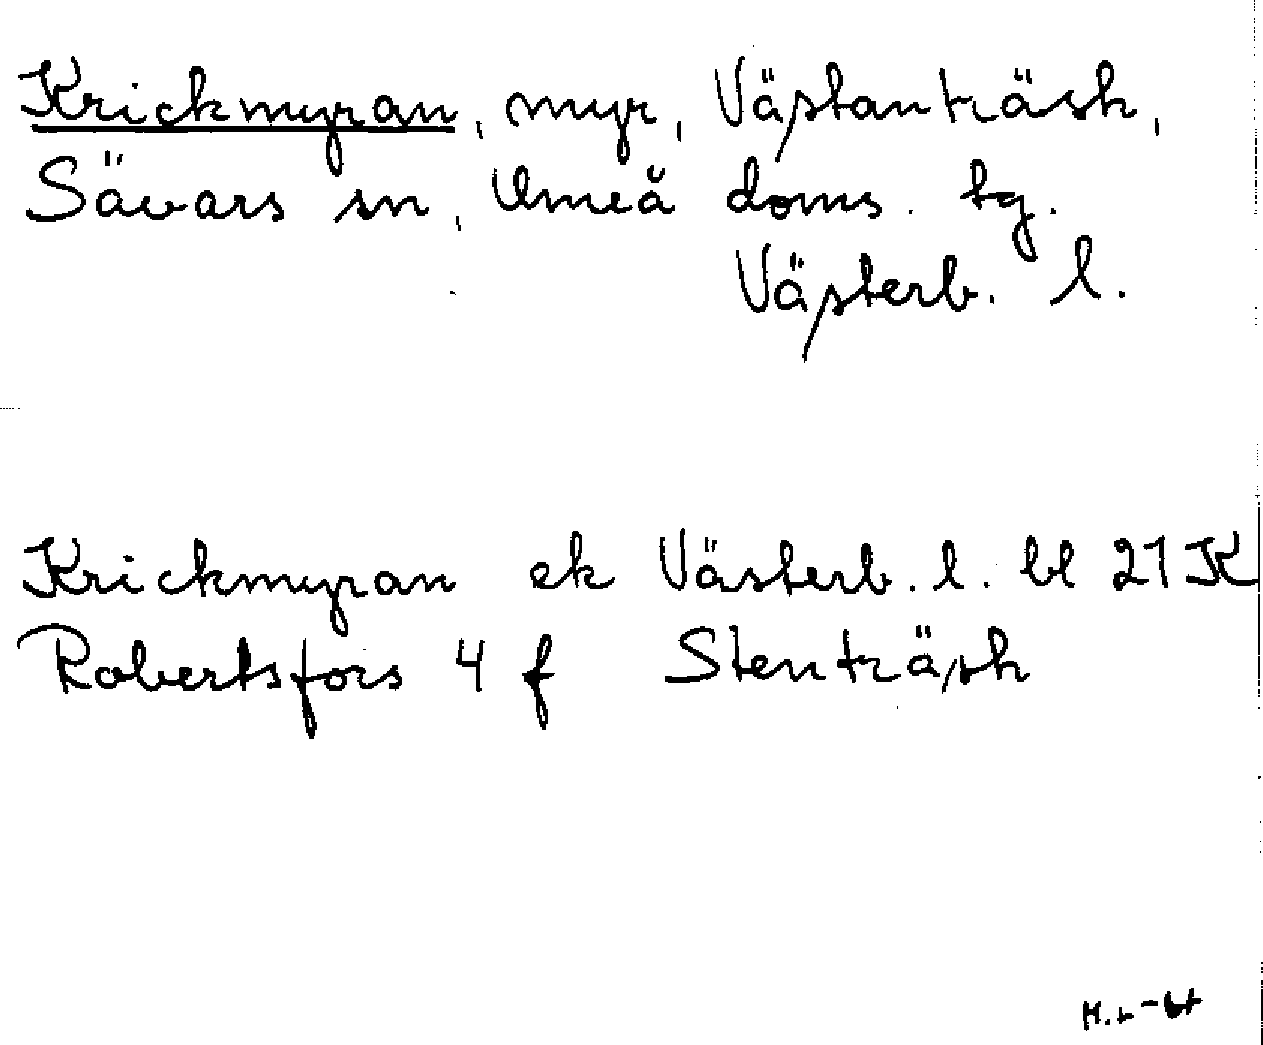 Krickmyran, myr, Västanträsk,
Sävars sn, Umeå doms. tg.
Västerb. l.
Krickmyran ek Västerb. l. bl 21 K
Robertsfors 4 f Stenträsk